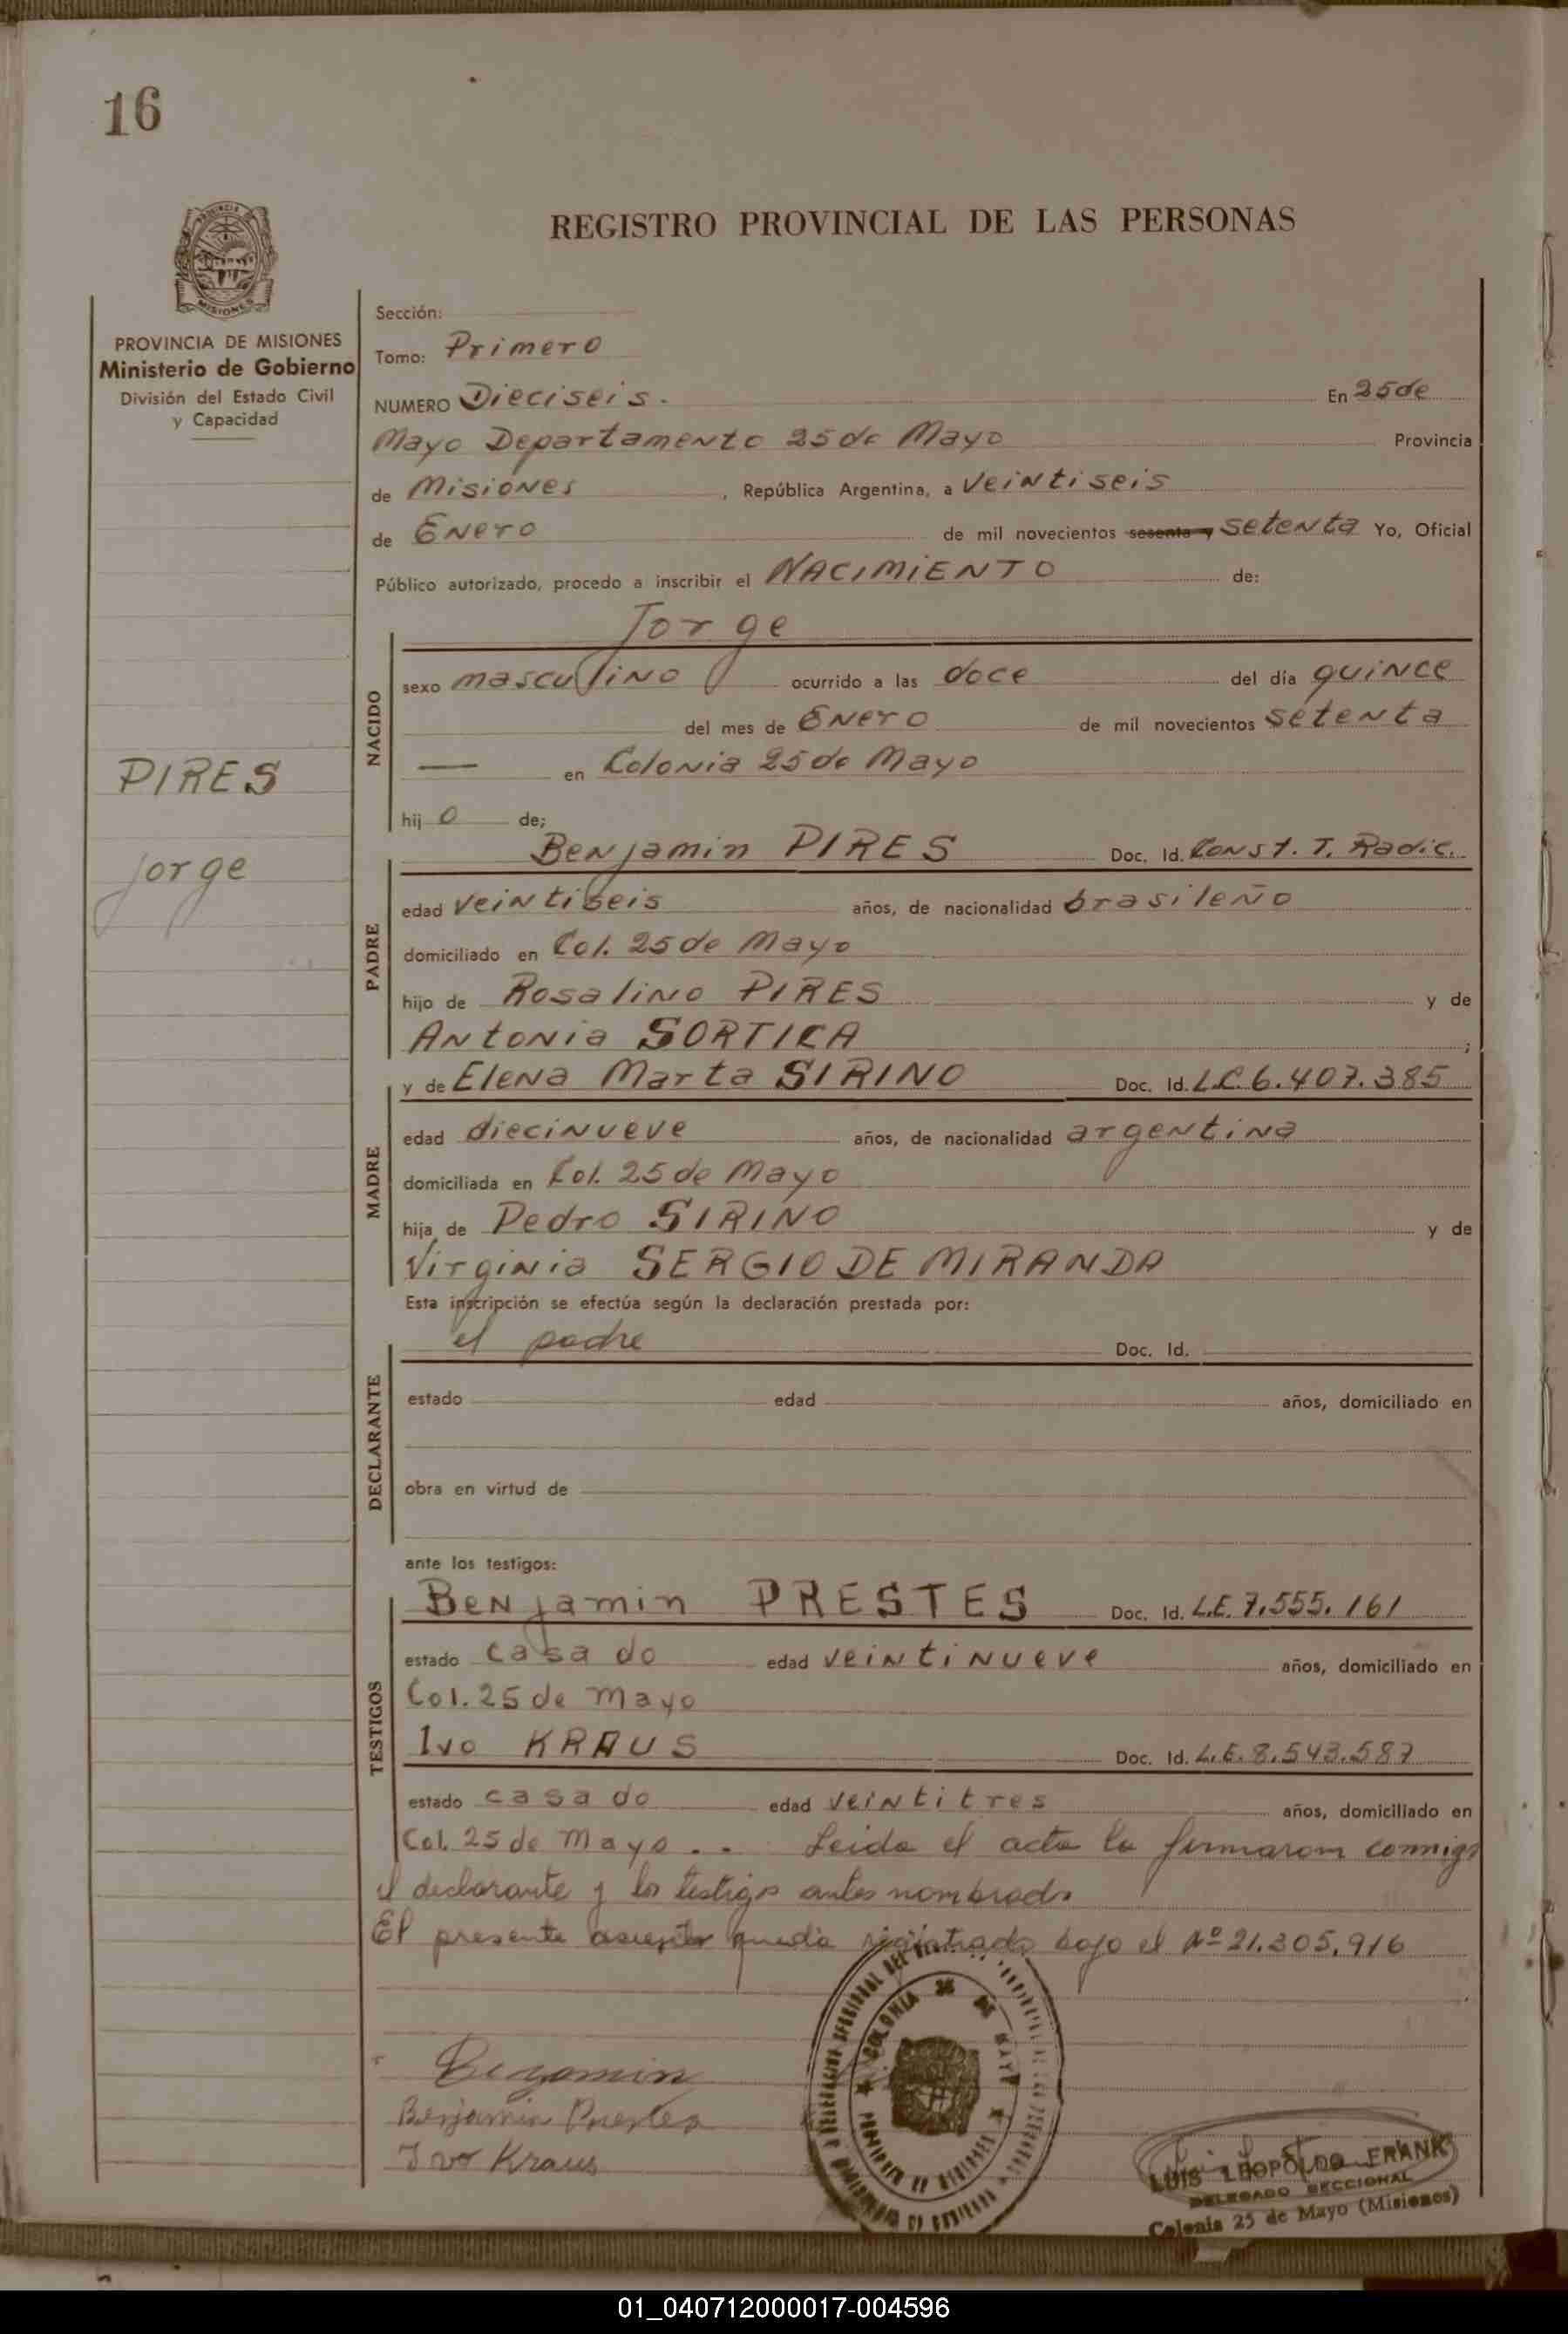 16
REGISTRO PROVINCIAL DE LAS PERSONAS
PROVINCIA DE MISIONES
Ministerio de Gobierno
División del Estado Civil
y Capacidad
PIRES
Jorge
Sección:
Tomo: Primero
NUMERO Dieciseis. En 25 de
Mayo Departamento 25 de Mayo Provincia
de Misiones, República Argentina, a veintiseis
de Enero de mil novecientos sesenta y setenta Yo, Oficial
Público autorizado, procedo a inscribir el NACIMIENTO de:
NACIDO
Jorge
sexo masculino ocurrido a las doce del día quince
del mes de Enero de mil novecientos setenta
— en Colonia 25 de Mayo
hij o de;
PADRE
Benjamin PIRES Doc. Id. Const. T. Radic.
edad veintiseis años, de nacionalidad brasileño
domiciliado en Col. 25 de Mayo
hijo de Rosalino PIRES y de
Antonia SORTICA ;
MADRE
y de Elena Marta SIRINO Doc. Id. L.C. 6.407.385
edad diecinueve años, de nacionalidad argentina
domiciliada en Col. 25 de Mayo
hija de Pedro SIRINO y de
Virginia SERGIO DE MIRANDA
Esta inscripción se efectúa según la declaración prestada por:
DECLARANTE
el padre Doc. Id.
estado edad años, domiciliado en
obra en virtud de
ante los testigos:
TESTIGOS
Benjamin PRESTES Doc. Id. L.E. 7.555.161
estado casado edad veintinueve años, domiciliado en
Col. 25 de Mayo
Ivo KRAUS Doc. Id. L.E. 8.543.587
estado casado edad veintitres años, domiciliado en
Col. 25 de Mayo .. Leida el acta la firmaron conmigo
el declarante y los testigos antes nombrados
El presente asiento queda registrado bajo el Nº 21.305.916
Benjamin Prestes
Ivo Kraus
COLONIA 25 DE MAYO
PROVINCIA DE MISIONES
LUIS LEOPOLDO FRANK
DELEGADO SECCIONAL
Colonia 25 de Mayo (Misiones)
01_040712000017-004596